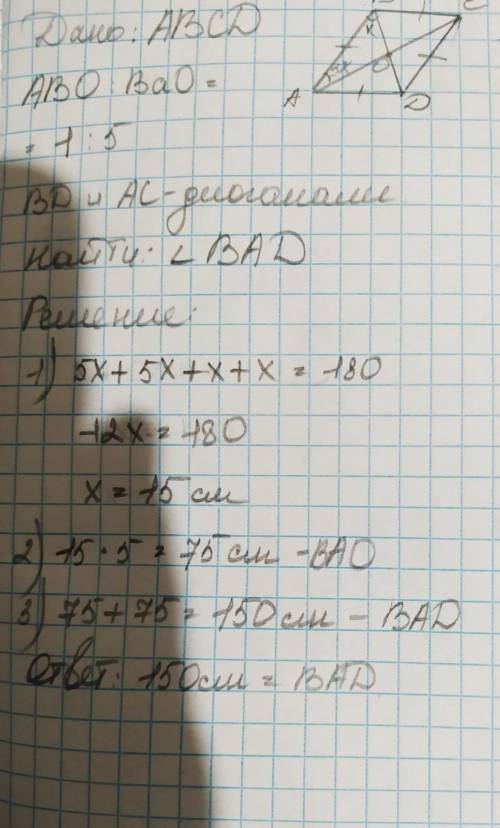 Дано: ABCD
ABO : BaO =
= 1 : 5
BD и AC - диоганали
Найти: ∠ BAD
Решение:
1) 5x + 5x + x + x = 180
12x = 180
x = 15 см
2) 15 · 5 = 75 см - BAO
3) 75 + 75 = 150 см - BAD
Ответ: 150 см = BAD
A
O
D
C